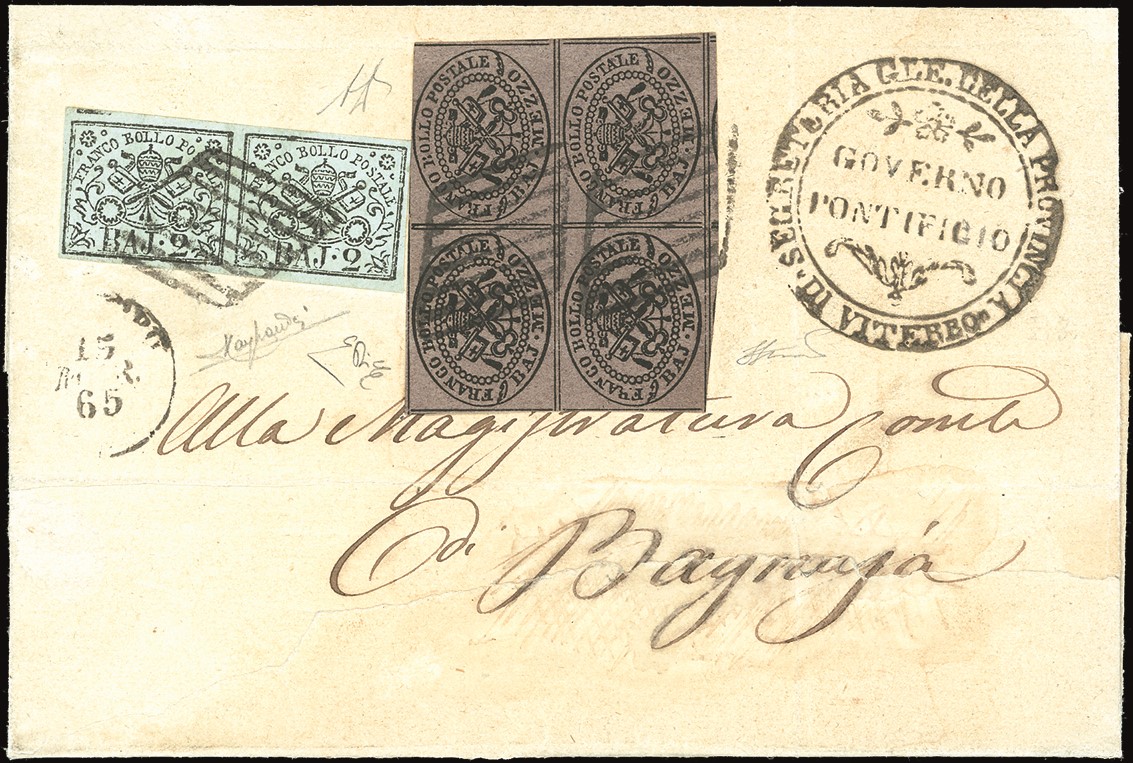 FRANCO BOLLO POSTALE
BAJ·2
FRANCO BOLLO POSTALE
BAJ·2
FRANCO BOLLO POSTALE MEZZO BAJ.
FRANCO BOLLO POSTALE MEZZO BAJ.
FRANCO BOLLO POSTALE MEZZO BAJ.
FRANCO BOLLO POSTALE MEZZO BAJ.
SEGRETERIA GLE. DELLA PROVINCIA DI VITERBO
GOVERNO
PONTIFICIO
15
65
Alla Magistratura Comle
di Bagnajá